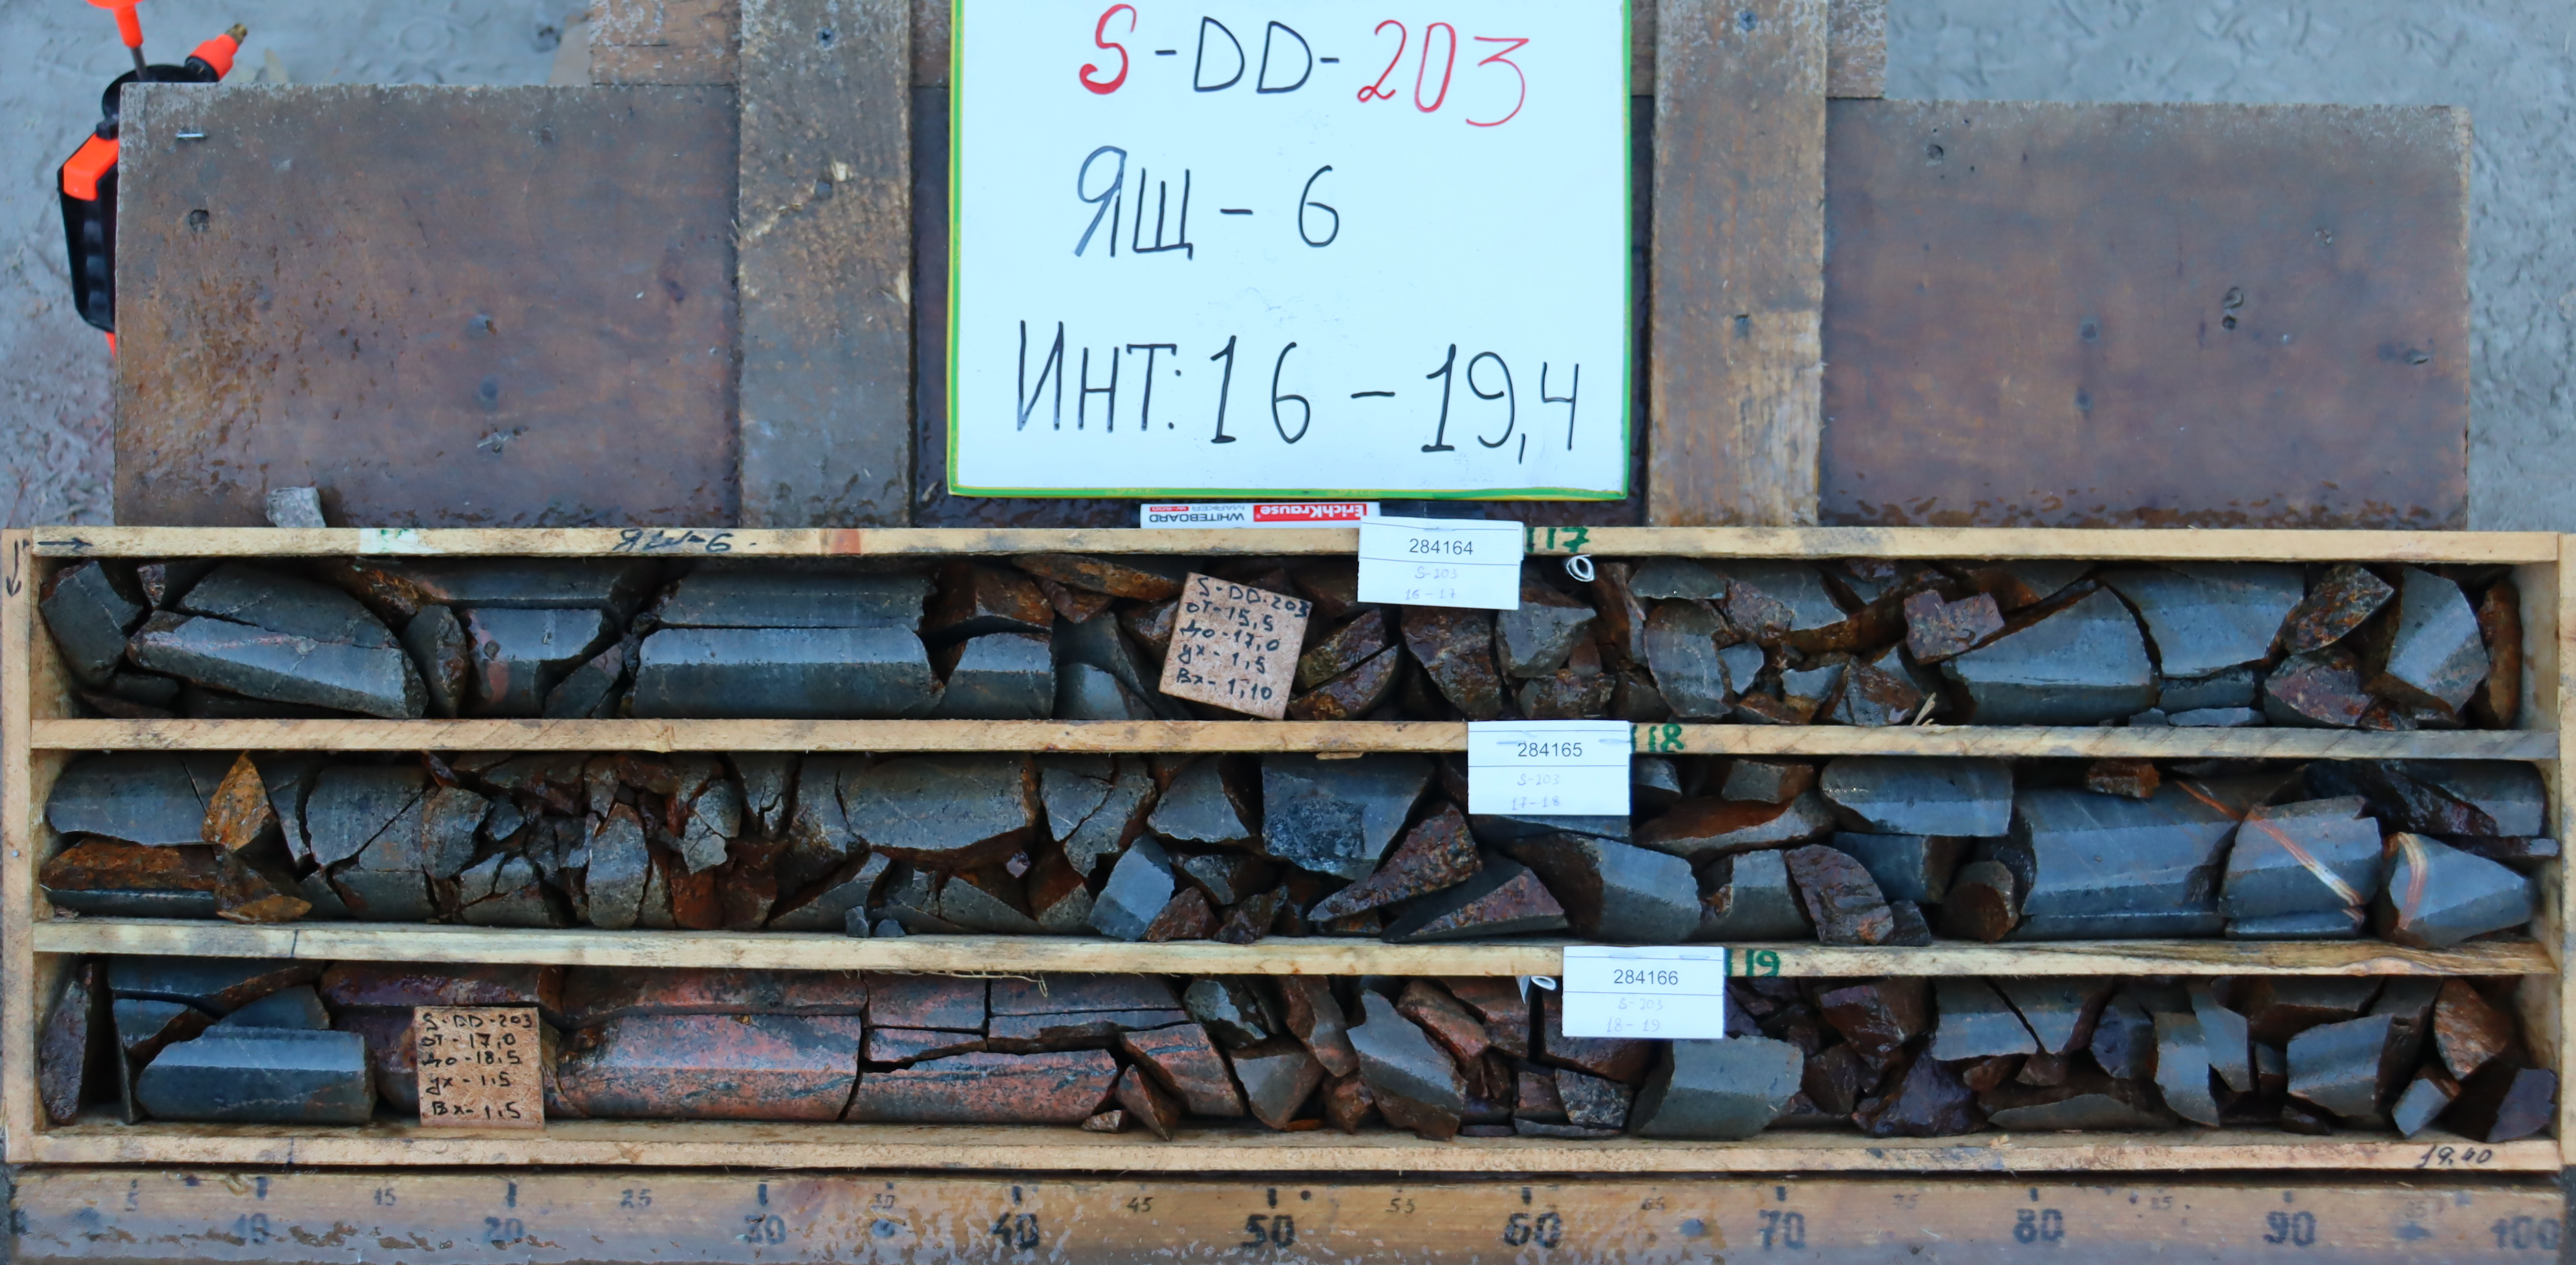 S-DD-203
ЯЩ-6
ИНТ: 16-19,4
ErichKrause
WHITEBOARD
MARKER
ЯЩ-6
284164
S-203
16-17
117
S-DD-203
от-15,5
до-17,0
ух-1,5
Вх-1,10
284165
S-203
17-18
118
284166
S-203
18-19
119
S-DD-203
от-17,0
до-18,5
ух-1,5
Вх-1,5
19.40
5 10 15 20 25 30 40 45 50 55 60 70 80 90 100